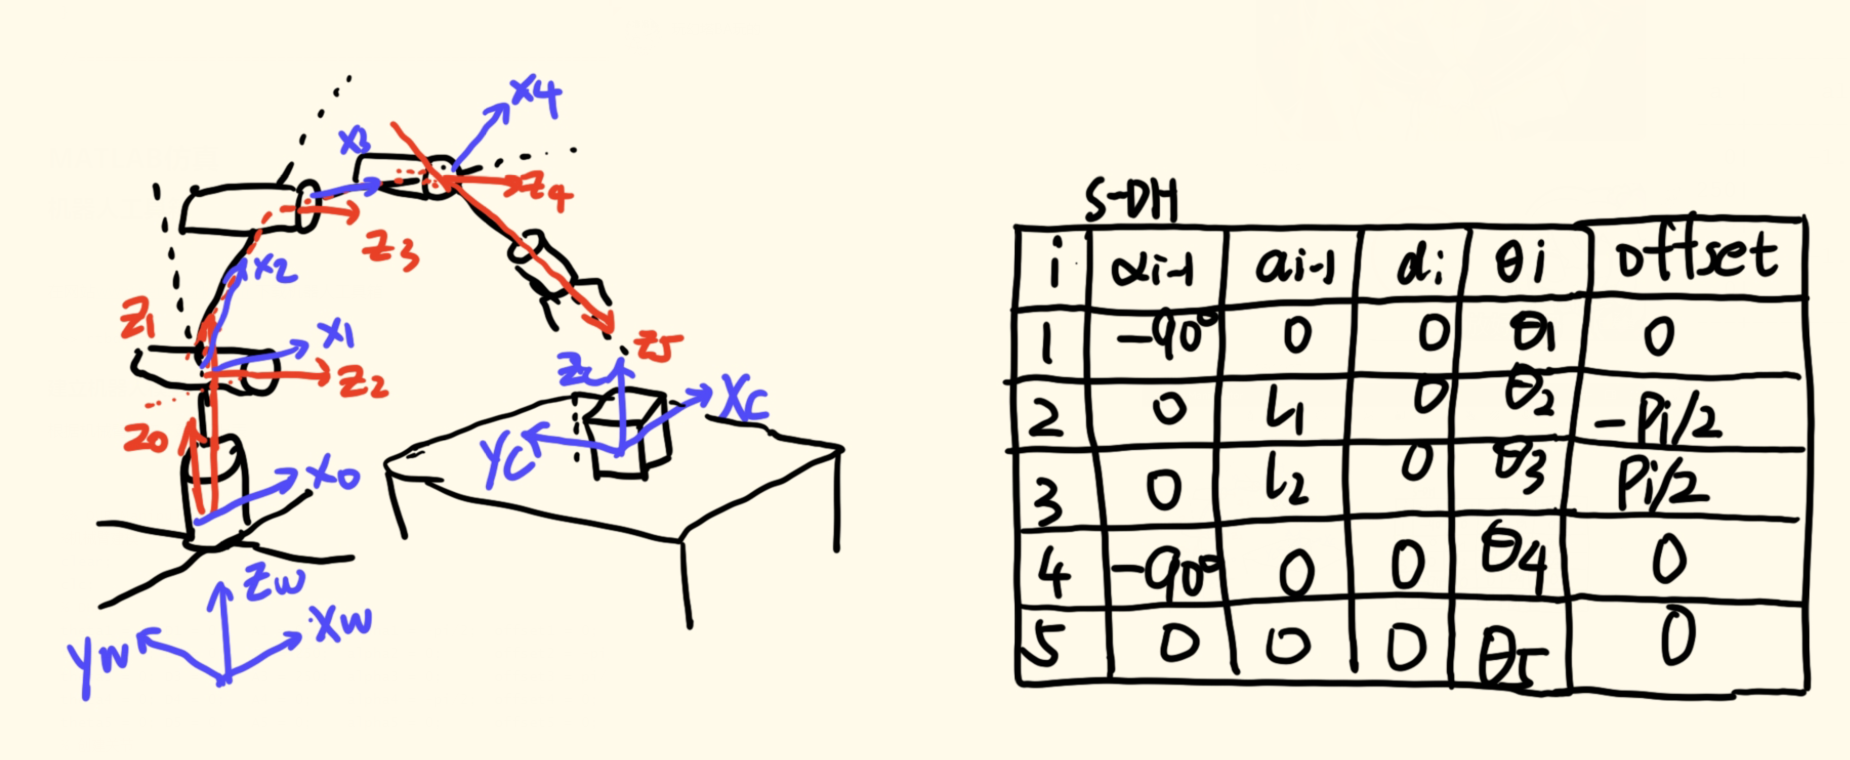 X4
X3
Z4
S-DH
Z3
X2
Z1
X1
Z2
Z5
Zc
Xc
Z0
Yc
X0
Zw
Xw
Yw
i αi-1 ai-1 di θi offset
1 -90° 0 0 θ1 0
2 0 L1 0 θ2 -Pi/2
3 0 L2 0 θ3 Pi/2
4 -90° 0 0 θ4 0
5 0 0 0 θ5 0